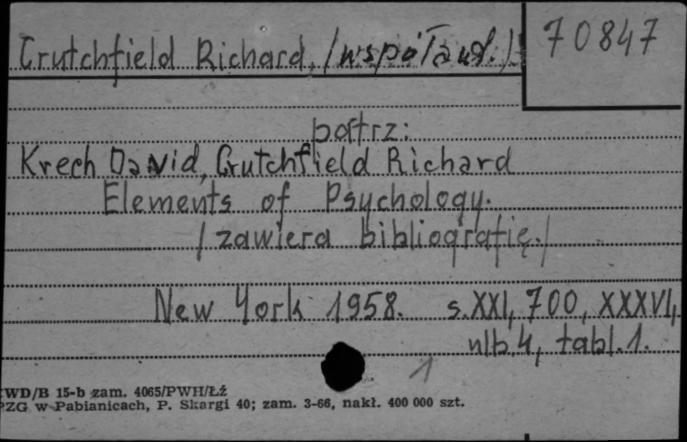 Crutchfield Richard, /współaut./
70847
patrz:
Krech David, Crutchfield Richard
Elements of Psychology.
/zawiera bibliografię./
New York 1958. s. XXI, 700, XXXVI,
nlb. 4, tabl. 1.
1
WD/B 15-b zam. 4065/PWH/Łź
PZG w Pabianicach, P. Skargi 40; zam. 3-66, nakł. 400 000 szt.